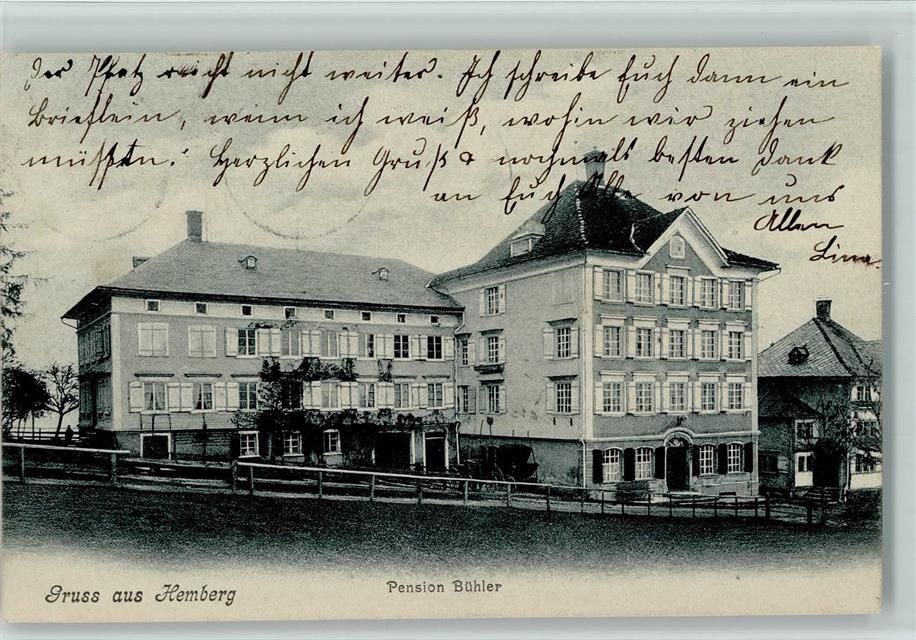 Der Platz reicht nicht weiter. Ich schreibe Euch dann ein
Brieflein, wenn ich weiß, wohin wir ziehen
müssen. Herzlichen Gruß & nochmals besten Dank
an Euch Alle von uns
Allen
Lina.
Gruss aus Hemberg
Pension Bühler